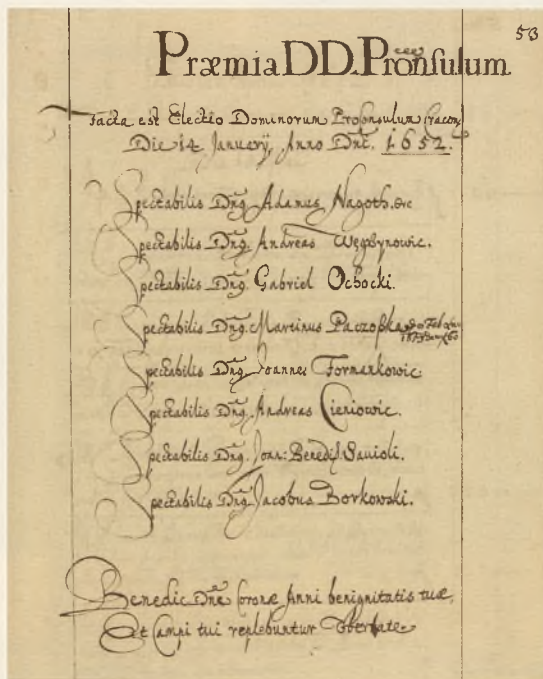 53
Præmia DD. Pronsulum
Facta est Electio Dominorum Prosonsulum Cracon
Die 14 Januarÿ, Anno Dnī. 1652.
Spectabilis Dn̄s Adamus Nagoth. etc
Spectabilis Dn̄s. Andreas Węgrynowic.
Spectabilis Dn̄s. Gabriel Ochocki.
Spectabilis Dn̄s. Martinus Paczoska
Spectabilis Dn̄s. Joannes Formankowic
Spectabilis Dn̄s. Andreas Cieniowic.
Spectabilis Dn̄s. Joan: Bened: Savioli.
Spectabilis Dn̄s. Jacobus Borkowski.
Benedic Dn̄e Coronæ Anni benignitatis tuæ,
Et Campi tui replebuntur Vbertate